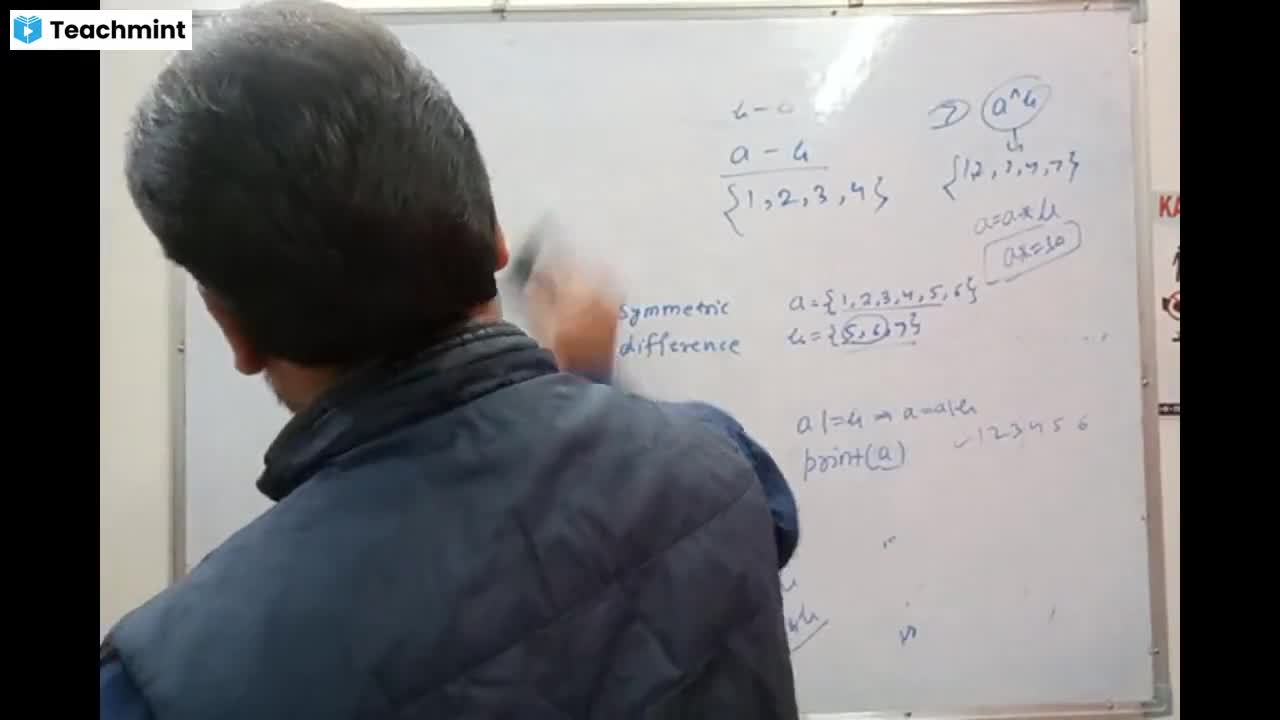 Teachmint
a - b
{1, 2, 3, 4}
a^b
{1,2,3,4,7}
a=a*b
a*=30
KA
symmetric
difference
a={1,2,3,4,5,6}
b={5,6,7}
a|=b ⇒ a=a|b
print(a)
1 2 3 4 5 6